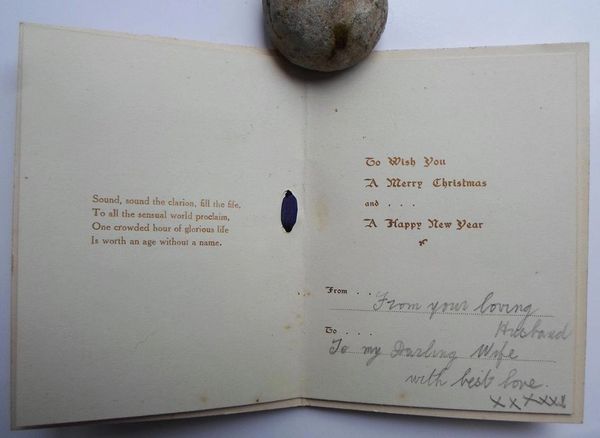 Sound, sound the clarion, fill the fife,
To all the sensual world proclaim,
One crowded hour of glorious life
Is worth an age without a name.
To Wish You
A Merry Christmas
and . . .
A Happy New Year
From . . .
From your loving
Husband
To . . . .
To my Darling Wife
with best love.
xxxxxx